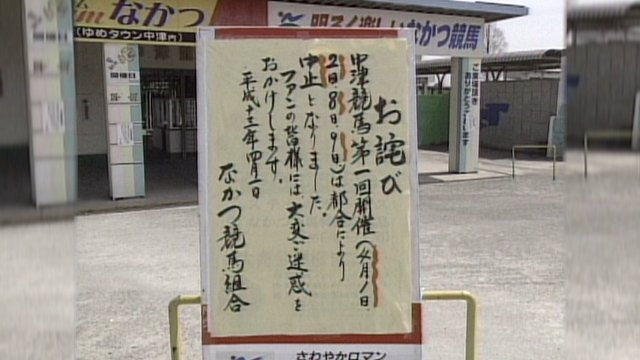 なかつ
(ゆめタウン中津内)
明るく楽しいなかつ競馬
開催日
ご来場頂き
ありがとうございます
お詫び
中津競馬第一回開催(四月一日、
2日8日9日)は都合により
中止となりました。
ファンの皆様には大変ご迷惑を
おかけします。
平成十三年四月一日
なかつ競馬組合
さわやかロマン